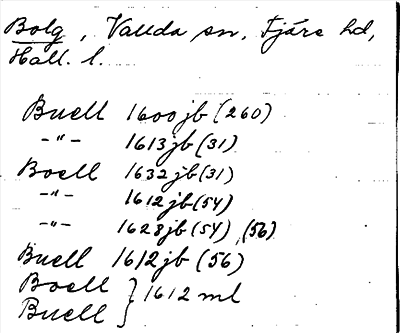 Bolg, Vallda sn, Fjäre hd,
Hall. l.
Buell 1600 jb (260)
-"- 1613 jb (31)
Boell 1632 jb (31)
-"- 1612 jb (54)
-"- 1628 jb (54), (56)
Buell 1612 jb (56)
Boell } 1612 ml
Buell }